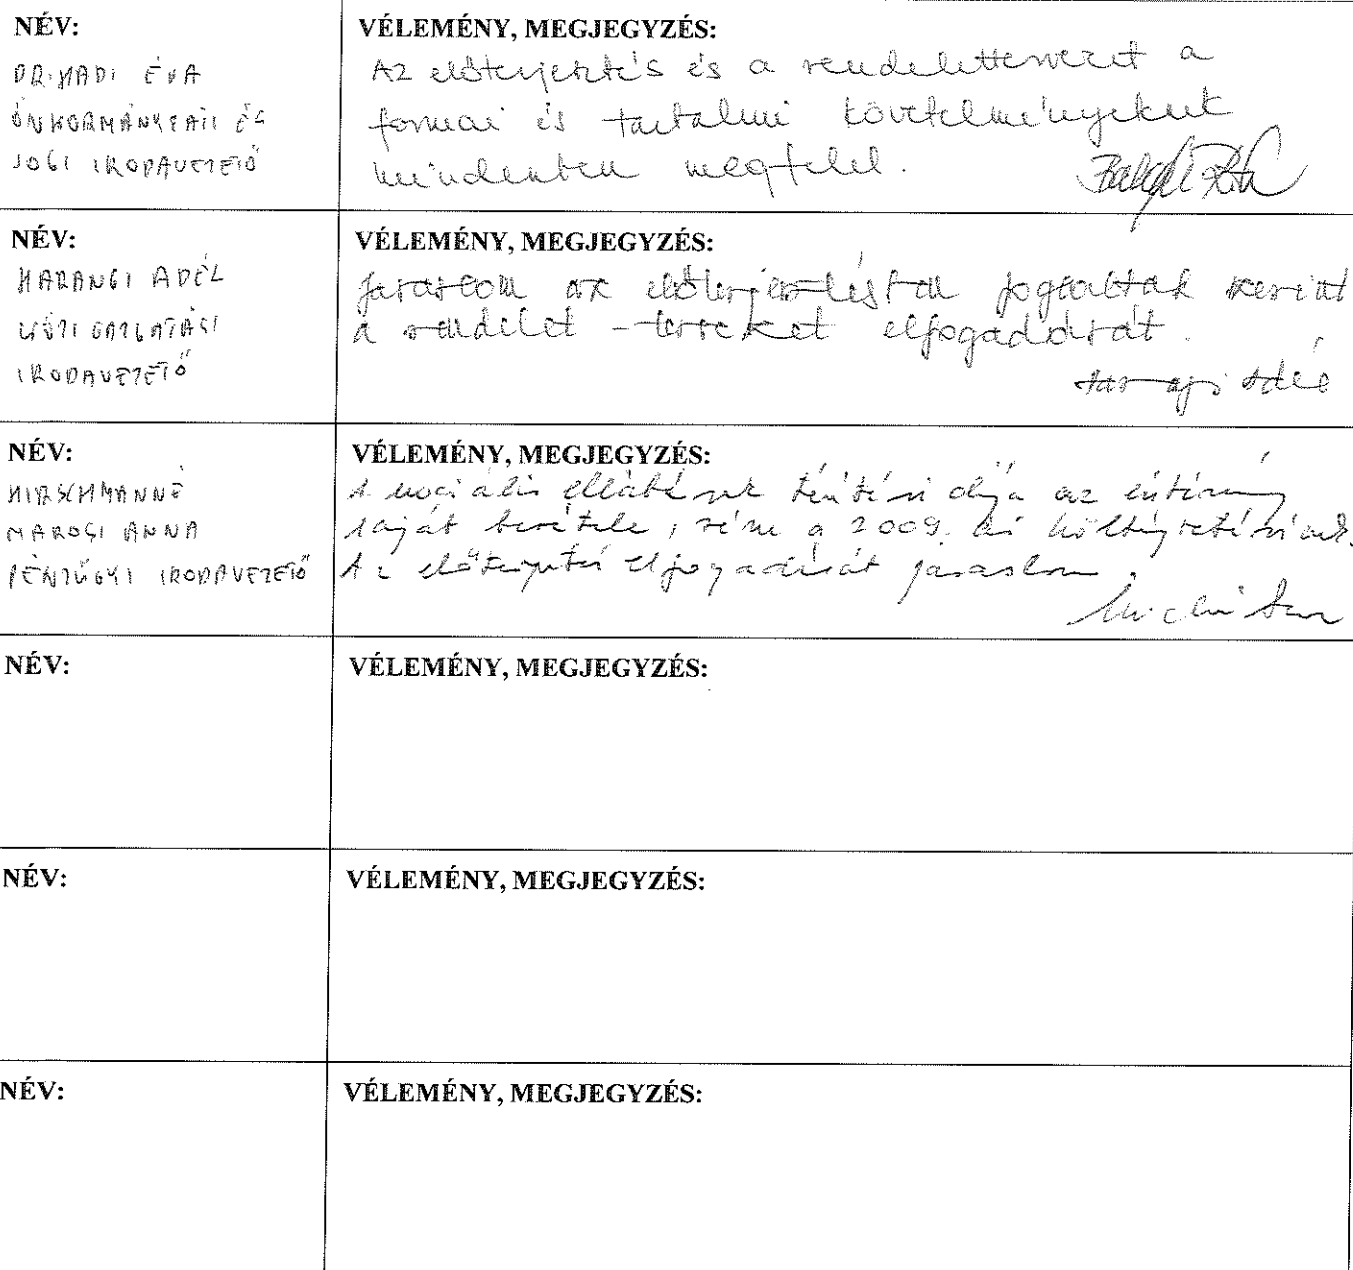 NÉV:
DR. HADI ÉVA
ÖNKORMÁNYZATI ÉS
JOGI IRODAVEZETŐ
VÉLEMÉNY, MEGJEGYZÉS:
Az előterjesztés és a rendelettervezet a
formai és tartalmi követelményeknek
mindenben megfelel.
NÉV:
HARANGI ADÉL
KÖZIGAZGATÁSI
IRODAVEZETŐ
VÉLEMÉNY, MEGJEGYZÉS:
Javaslom az előterjesztésben foglaltak szerint
a rendelet-tervezet elfogadását.
Harangi Adél
NÉV:
HIRSCHMANNÉ
MAROSI ANNA
PÉNZÜGYI IRODAVEZETŐ
VÉLEMÉNY, MEGJEGYZÉS:
A szociális ellátások térítési díja az intézmény
saját bevétele, része a 2009. évi költségvetésünknek.
Az előterjesztés elfogadását javaslom.
NÉV:
VÉLEMÉNY, MEGJEGYZÉS:
NÉV:
VÉLEMÉNY, MEGJEGYZÉS:
NÉV:
VÉLEMÉNY, MEGJEGYZÉS: